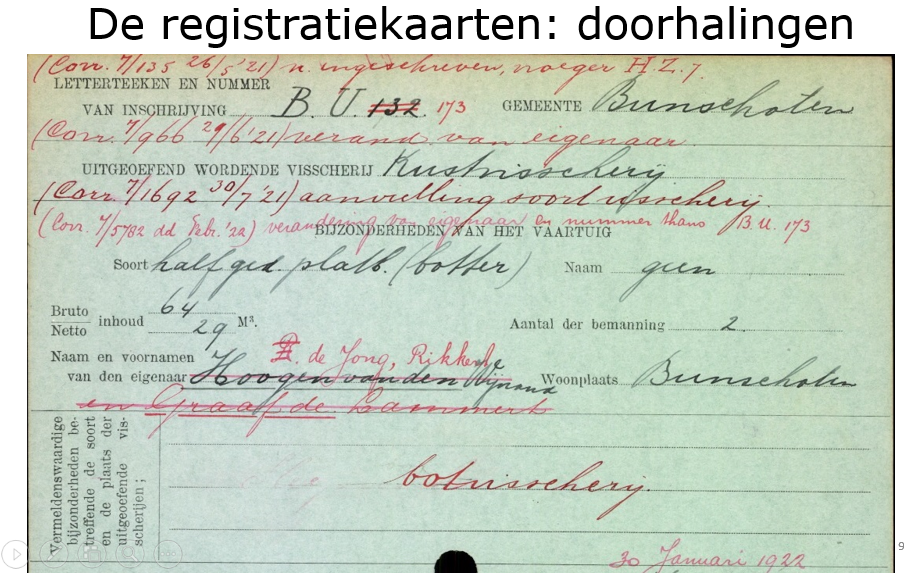 De registratiekaarten: doorhalingen
(Corr. 7/135 26/5 '21) n. ingeschreven, vroeger H.Z. 7
LETTERTEEKEN EN NUMMER
VAN INSCHRIJVING B. U. 132 173 GEMEENTE Bunschoten
(Corr. 7/966 29/6 '21) verand. van eigenaar.
UITGEOEFEND WORDENDE VISSCHERIJ Kustvisscherij
(Corr 7/1692 30/7 '21) aanvulling soort visscherij.
(Corr. 7/5782 dd Febr. '22) verandering van eigenaar en nummer thans B.U. 173
BIJZONDERHEDEN VAN HET VAARTUIG
Soort half ged. platb. (botter) Naam geen
Bruto 64
inhoud M³.
Netto 29
Aantal der bemanning 2.
Naam en voornamen de Jong, Rikkelje
van den eigenaar Hoogen van den Wijnand Woonplaats Bunschoten
en Graaf de Lammert
Vermeldenswaardige
bijzonderheden be-
treffende de soort
en de plaats der
uitgeoefende vis-
scherijen;
botvisscherij.
30 Januari 1922
9